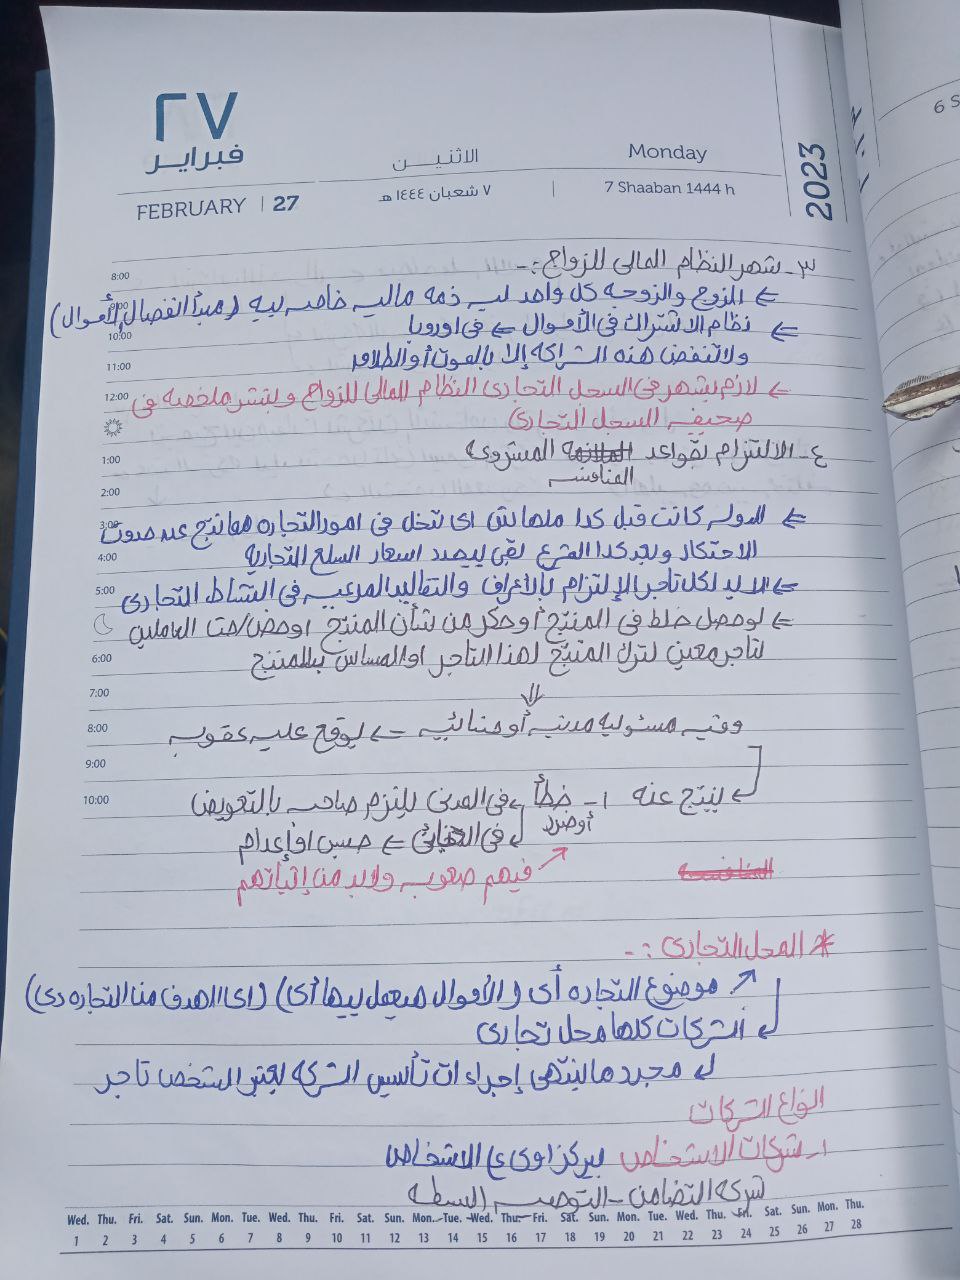 ٢٧
فبراير
FEBRUARY | 27
الاثنين
٧ شعبان ١٤٤٤ هـ
Monday
7 Shaaban 1444 h
2023
6 S
8:00
٣- شهر النظام المالى للزواج :-
9:00
← الزوج والزوجه كل واحد ليه ذمه ماليه خاصه بيه (مبدأ انفصال الأموال)
10:00
← نظام الاشتراك فى الأموال ← فى اوروبا
11:00
ولا تنفض هذه الشراكه إلا بالموت أو الطلاق
12:00
← لازم يشهر فى السجل التجارى النظام المالى للزواج وينشر ملخصه فى
صحيفه السجل التجارى
1:00
٤- الالتزام بقواعد المنافسه المشروعه
2:00
3:00
← الدوله كانت قبل كدا ملهاش اى تدخل فى امور التجاره مما نتج عنه حدوث
4:00
الاحتكار وبعد كدا المشرع بقى بيحدد اسعار السلع التجارية
5:00
← لابد لكل تاجر الإلتزام بالأعراف والتقاليد المرعيه فى النشاط التجارى
← لو حصل خلط فى المنتج أو حكر من شأن المنتج او حض/حث العاملين
6:00
لتاجر معين لترك المنتج لهذا التاجر او المساس بالمنتج
7:00
⇓
8:00
وفيه مسئوليه مدنيه أو جنائيه ← يوقع عليه عقوبه
9:00
10:00
← ينتج عنه ١- خطأ أو ضرر ← فى المدنى يلتزم صاحبه بالتعويض
← فى الجنائى ← حبس او إعدام
المنافسه
فيهم صعوبه ولابد من إثباتهم
* المحل التجارى :-
موضوع التجاره أى (الأموال هيعمل بيها أى) (اى الهدف من التجاره دى)
← الشركات كلها محل تجارى
← مجرد ما ينتهى إجراءات تأسيس الشركه يعتبر الشخص تاجر
انواع الشركات
١- شركات الاشخاص بيركز اوى ع الاشخاص
شركة التضامن - التوصيه البسيطه
Wed. Thu. Fri. Sat. Sun. Mon. Tue. Wed. Thu. Fri. Sat. Sun. Mon. Tue. Wed. Thu. Fri. Sat. Sun. Mon. Tue. Wed. Thu. Fri. Sat. Sun. Mon. Thu.
1 2 3 4 5 6 7 8 9 10 11 12 13 14 15 16 17 18 19 20 21 22 23 24 25 26 27 28